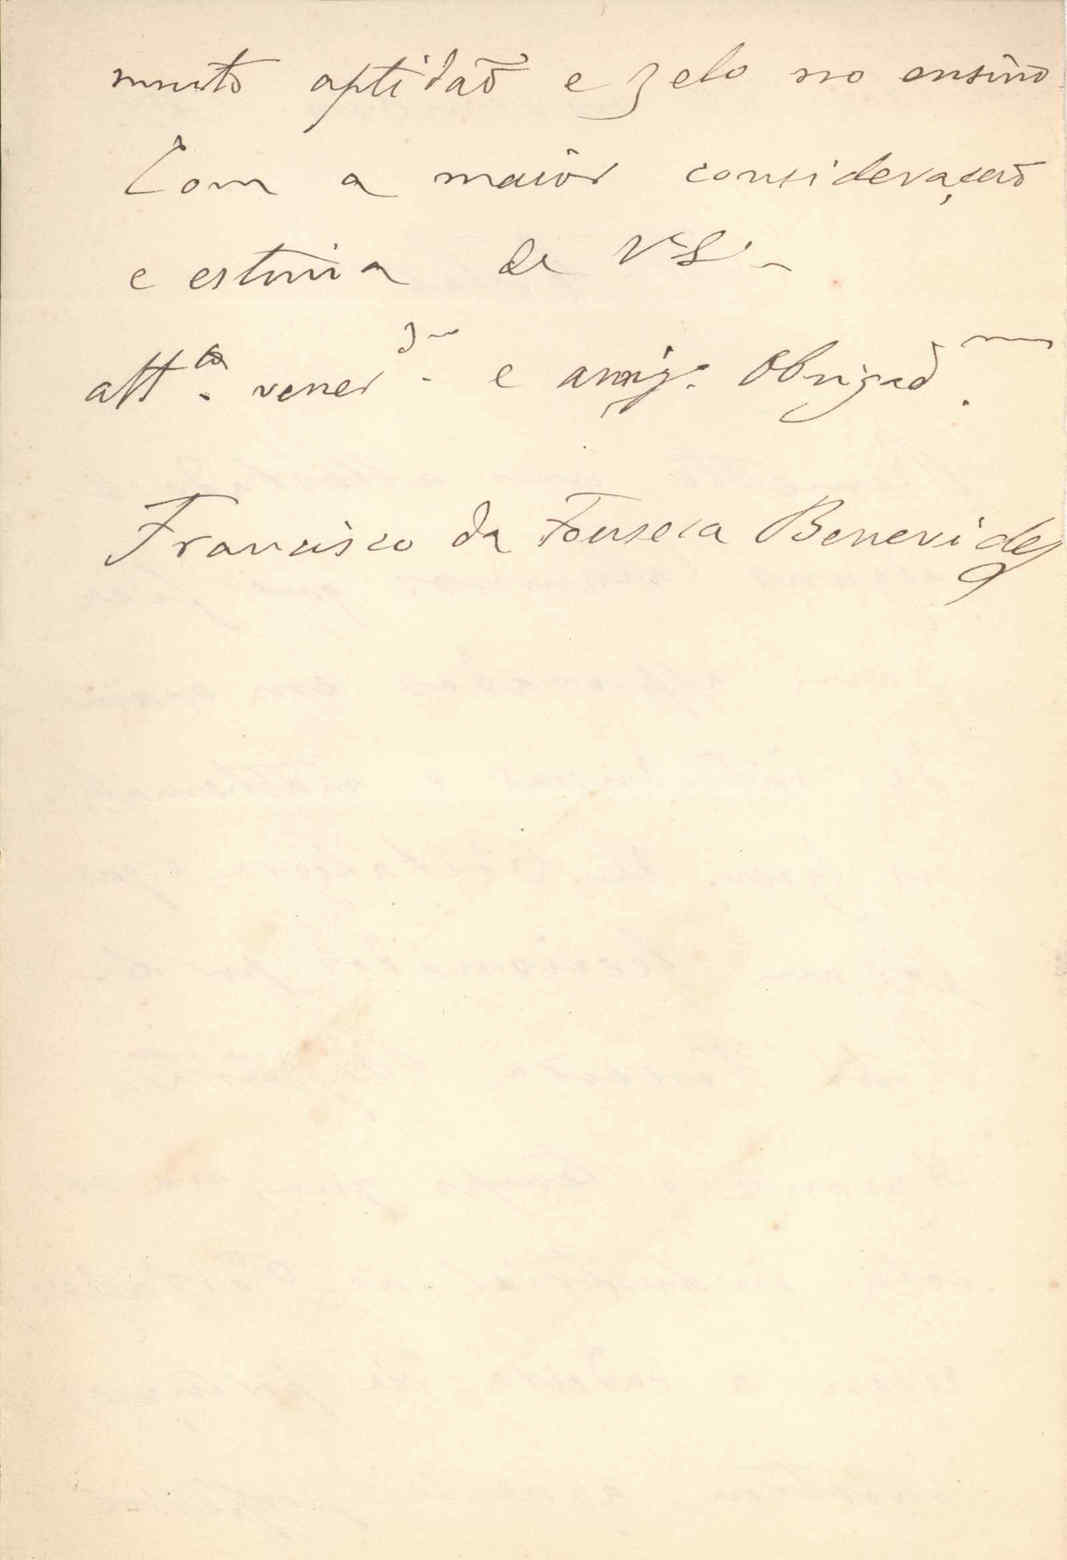 muito aptidaõ e zelo no ensino
Com a maior consideraçaõ
e estima de V. S.
att.º vener.dor e amigº obrigad.mo
Francisco da Fonseca Benevides